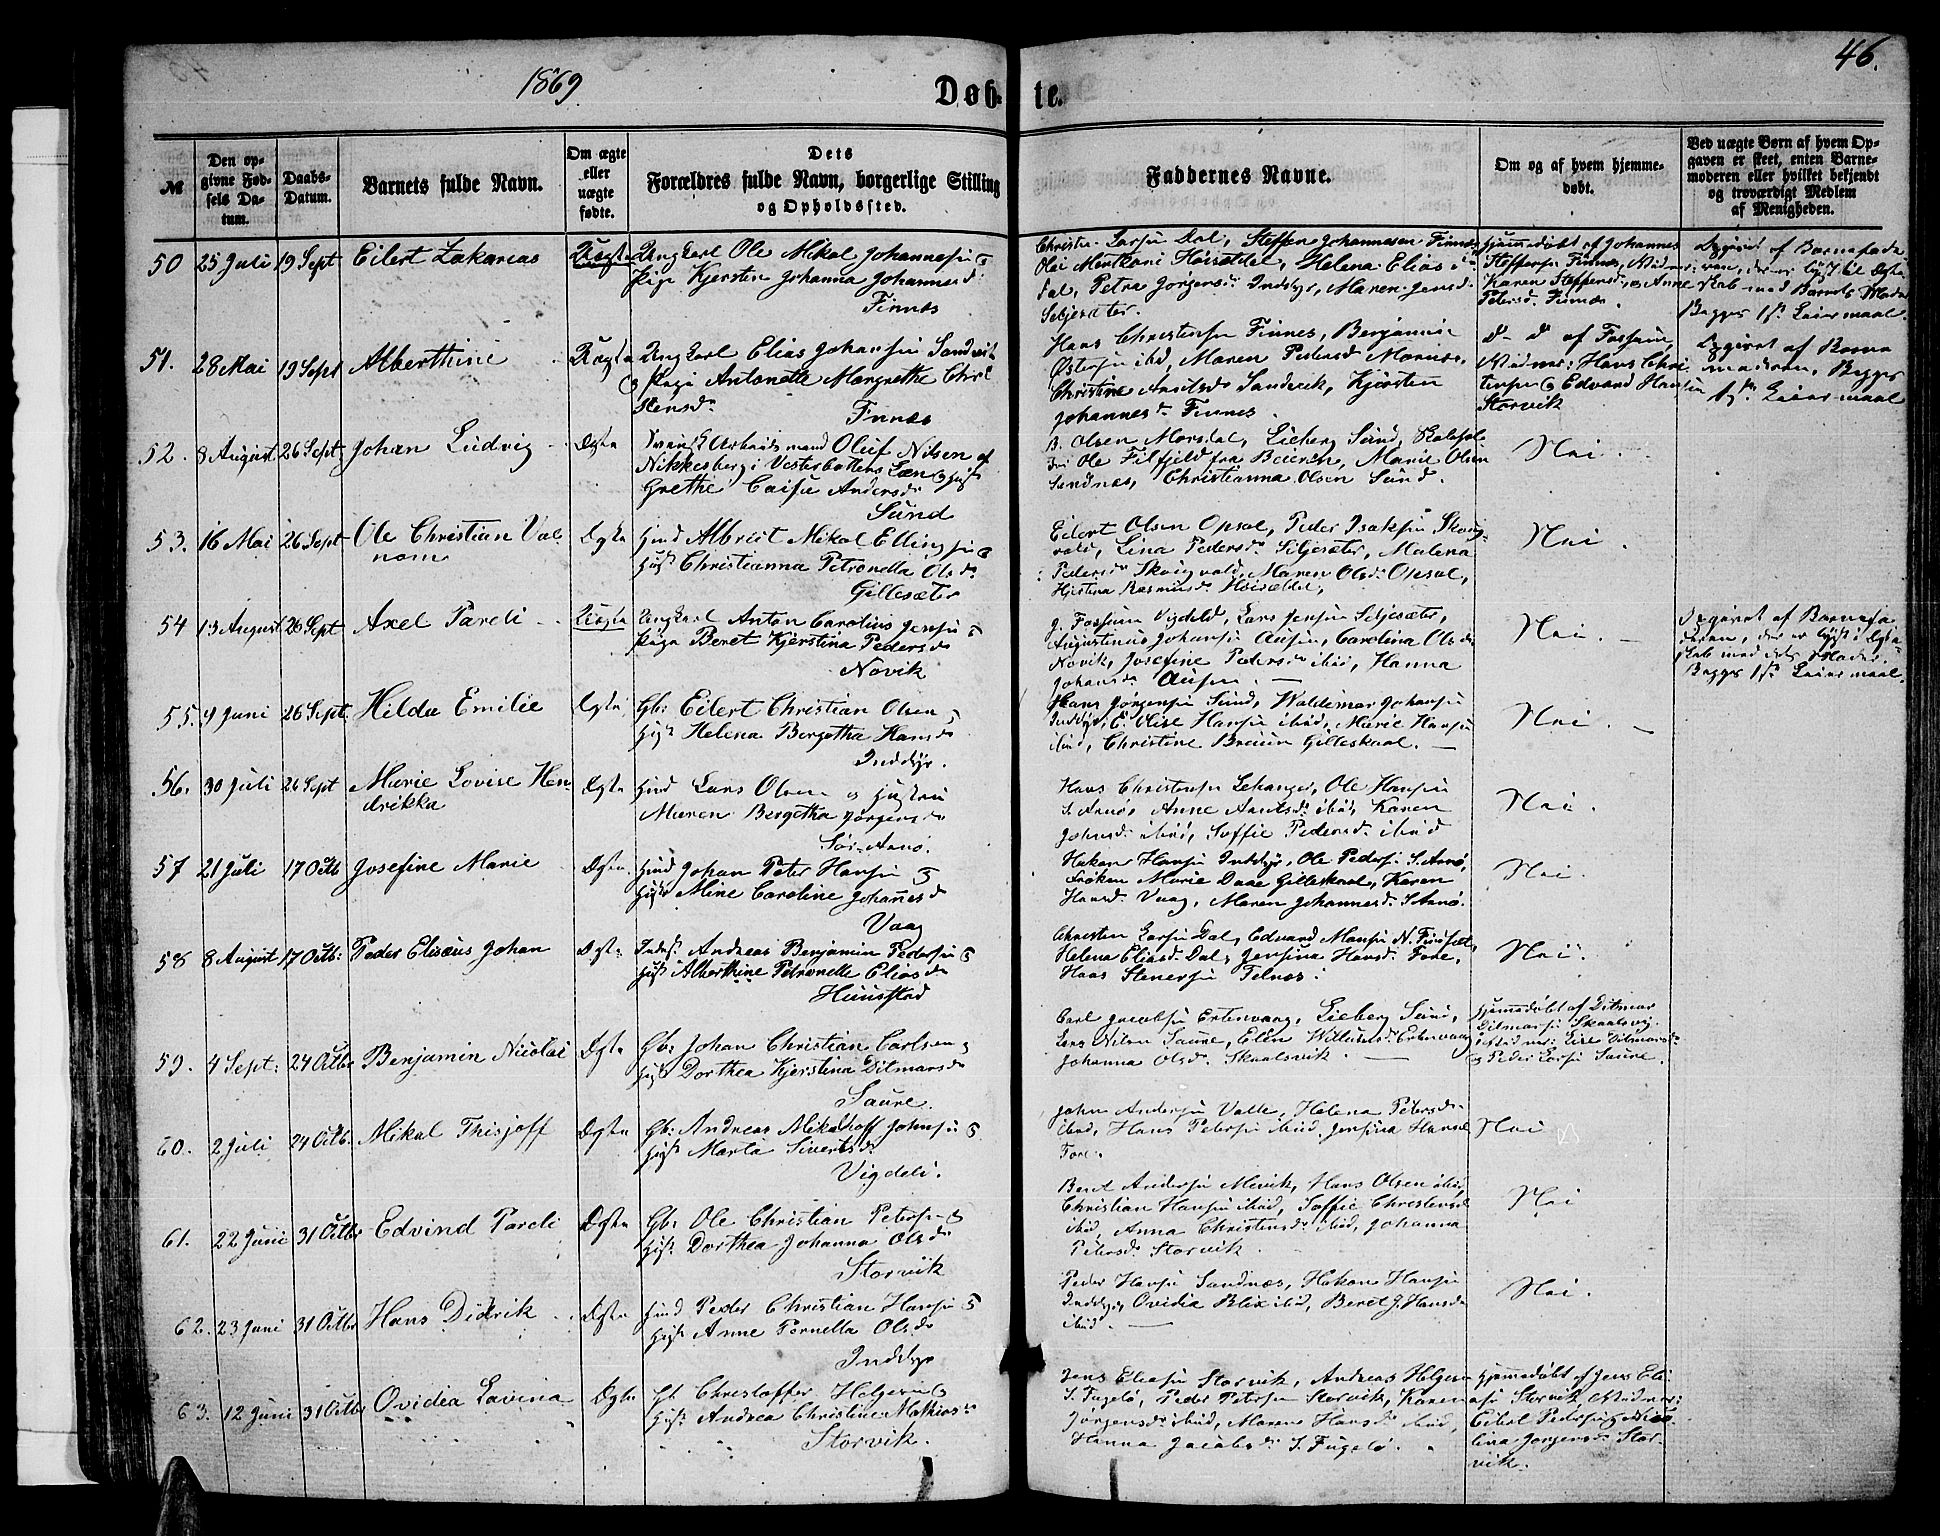 46.
1869
Døb- te.
№
Den op-
givne Fød-
sels Da-
tum.
Daabs-
Datum.
Barnets fulde Navn.
Om ægte
eller
uægte
fødte.
Dets
Forældres fulde Navn, borgerlige Stilling
og Opholdssted.
Faddernes Navne.
Om og af hvem hjemme-
døbt.
Ved uægte Børn af hvem Op-
gaven er skeet, enten Barne-
moderen eller hvilket bekjendt
og troværdigt Medlem
af Menigheden.
50 25 Juli 19 Sept Eilert Zakarias Uægte Ungkarl Ole Mikal Johannesen og
Pige Kjersten Johanna Johannesd:
Finnes
Steffen Johannesen Finnes
Helena Elias
Dal, Petra Jørgensd: Inddyr, Maren Jensd:
Seljesæter.
Hjemmedøbt af Johannes
Steffensen Finnes,
Karen Steffensd: og Anne
Petersd: Finnes.
Opgivet af Barnefade
ren, der er lyst til Ægte
skab med Barnets Moder
Begges 1ste Leiermaal.
51. 28 Mai 19 Sept Alberthine Uægte Ungkarl Elias Johansen Sandvik
og Pige Antonette Margrethe Chri
stensd:
Finnes
Hans Christensen Finnes, Benjamin
Østensen ibid, Maren Pedersd:
Christine Arntsd: Sandvik, Kjersten
Johannesd: Finnes.
d- d af
Vidner: Hans Chri
stensen og Edvard Hansen
Storvik
Opgivet af Barne
moderen, Begges
1ste Leiermaal
52. 8 August 26 Sept Johan Ludvig Ægte Svensk Arbeidsmand Oluf Nilsen af
Nikkesberg i Vesterbottens Læn og Hust:
Grethe Caisa Andersd:
Sund
B. Olsen Morsdal, Lieberg Sund,
Ole Filfjeld fra Beieren, Marie Olsen
Sandnæs, Christianna Olsen Sund.
Nei.
53. 16 Mai 26 Sept Ole Christian Val
nom Ægte Hmd Albrigt Mikal Ellingsen og
Hust Christianna Petronella Olsd:
Gillesæter
Eilert Olsen Opsal, Peder Isaksen Skaug-
vold, Lina Pedersd: Seljesæter, Malena
Pedersd: Skaugvold, Maren Olsd: Opsal,
Hjertina Rasmusd: Høisætlei,
Nei.
54 13 August 26 Sept Axel Pareli Uægte Ungkarl Anton Carolius Jensen og
Pige Beret Kjerstina Pedersd:
Novik
J. Fossum Vigdeld, Lars Jensen Seljesæter,
Augustinus Johansen Ausen, Carolina Olsd:
Novik, Josefine Pedersd: ibid, Hanna
Johansd: Ausen.
Nei.
Opgivet af Barnefa
deren, der er lyst i Ægte
skab med dets Moder.
Begges 1ste Leiermaal.
55. 9 Juni 26 Sept. Hilda Emilie Ægte Gb: Eilert Christian Olsen og
Hust Helena Bergetha Hansd:
Inddyr.
Hans Jørgensen Sund, Waldemar Johansen
Inddyr, E. Olise Hansen ibid, Marie Hansen
ibid, Christine Bruun Gilleskaal.
Nei.
56. 30 Juli 26 Sept Marie Lovise Hen
drikka Ægte Hmd Lars Olsen og Hustru
Maren Bergetha Jørgensd:
Sør-Arnø.
Hans Christensen Lekanger, Ole Hansen
S. Arnø, Anne Arntsd: ibid, Karen
Johnsd: ibid, Soffie Pedersd: ibid
Nei.
57 21 Juli 17 Octb Josefine Marie Ægte Hmd Johan Peter Hansen og
Hust Mine Caroline Johannesd:
Vaag
Hakon Hansen Inddyr, Ole Pedersen S. Arnø,
Frøken Marie Daae Gilleskaal, Karen
Hansd: Vaag, Maren Johannesd: S Arnø.
Nei.
58 8 August 17 Octb: Peder Elisæus Johan Ægte Inds: Andreas Benjamin Pedersen og
Hust Alberthine Petronelle Eliasd:
Huusstad
Christen Larsen Dal, Edvard Hansen N.
Helena Eliasd: Dal, Jensina Hansd: Fore,
Haas Stenersen Felnes.
Nei.
59. 4 Sept: 24 Octbr Benjamin Nicolai Ægte Gb: Johan Christian Carlsen og
Hust Dorthea Kjerstina Ditmarsd:
Saure.
Carl Jacobsen Ertenvaag, Lieberg Sund,
Lars Nilsen Saure, Elen Ertenvaag
Johanna Olsd: Skaalsvik.
Hjemmedøbt af Ditmar
Ditmarsen Skaalsvig.
Ditmarsd:
og Peder Larsen Saure.
60. 2 Juli 24 Octb. Mikal Thisjoff Ægte Gb: Andreas Mikalhoff Johnsen og
Hust Marta Sivertsd:
Vigdeli.
John Andersen Valle, Helena Petersd:
ibid, Hans Petersen ibid, Jensina
Fore.
Nei
61. 22 Juni 31 Octbr Edvind Pareli Ægte Gb: Ole Christian Petersen og
Hust Dorthea Johanna Olsd:
Storvik
Beret Andersen Mevik, Hans Olsen ibid,
Christian Hansen ibid, Soffie Christensd:
ibid, Anna Christensd: ibid, Johanna
Petersd: Storvik.
Nei
62. 23 Juni 31 Octbr Hans Didrik Ægte Hmd Peder Christian Hansen og
Hust Anne Pernella Olsd:
Inddyr
Peder Hansen Sandnæs, Hakon Hansen
Inddyr, Ovidia Blix ibid, Beret J. Hansd:
ibid.
Nei.
63. 12 Juni 31 Octbr Ovidea Lavina Ægte Gb Christoffer Helgesen og
Hust Andrea Christine Mathiasd:
Storvik.
Jens Eliasen Storvik, Andreas Helgesen
S. Fugelø, Peder Petersen Storvik, Karen
Jørgensd: ibid, Maren Hansd: ibid,
Hanna Jacobsd: S. Fugelø.
Hjemmedøbt af Jens Eli
asen Storvik, Vidner:
Pedersen
lina Jørgensd: Stor-
vik.